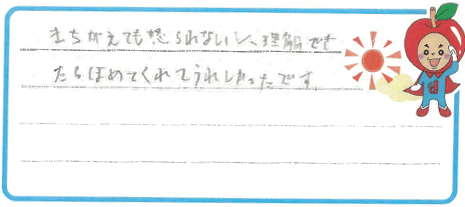 まちがえても怒られないし、理解でき
たらほめてくれてうれしかったです。